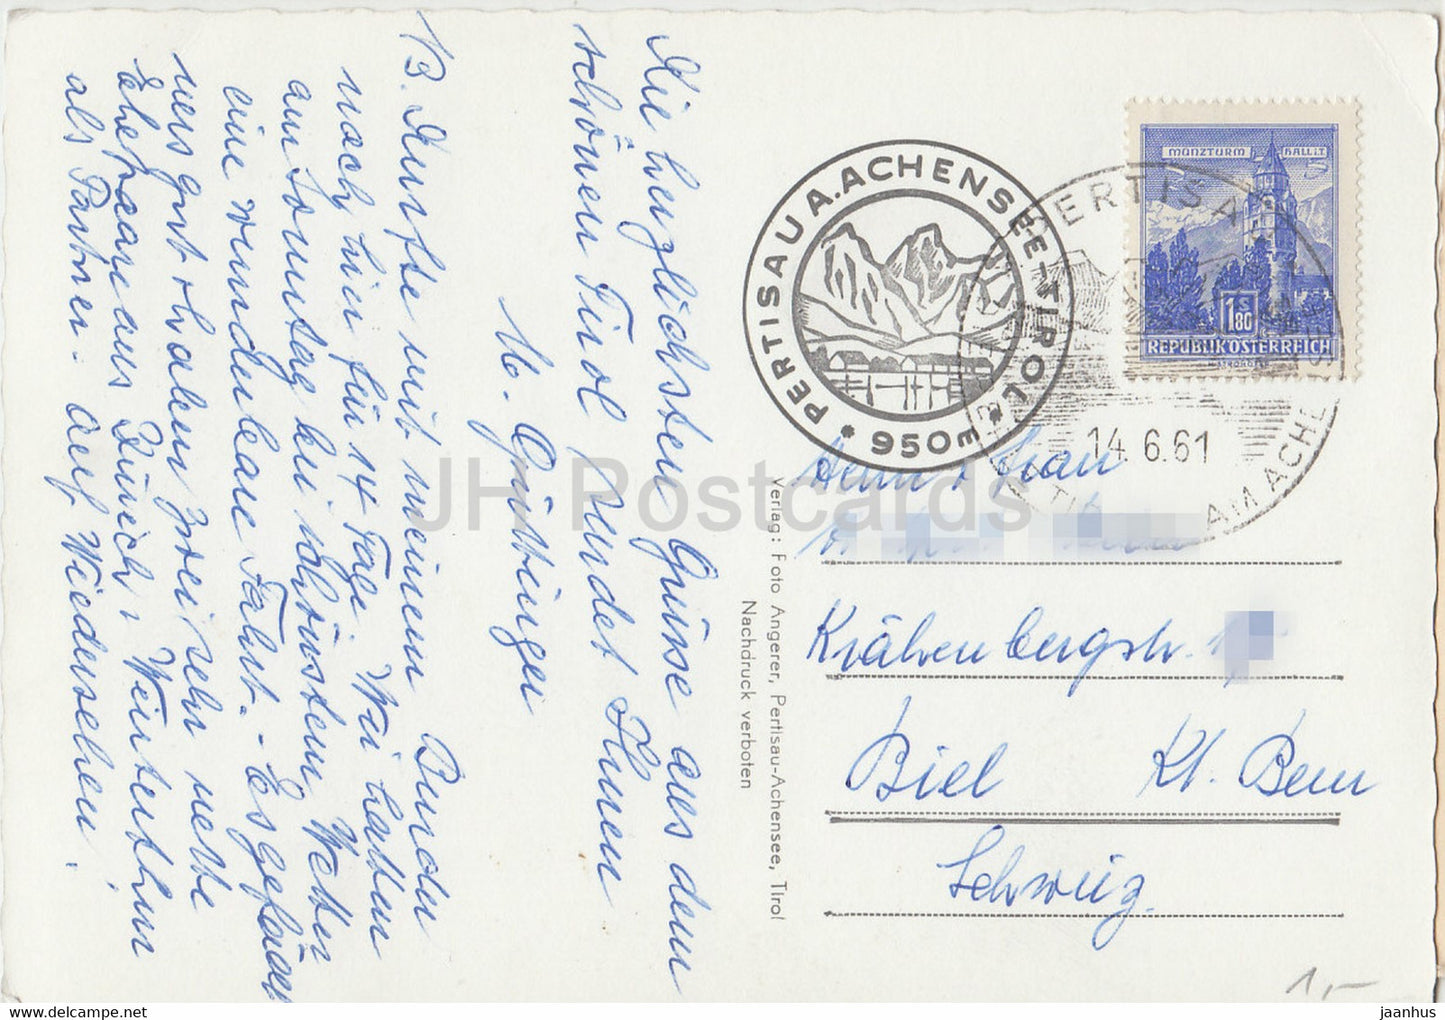 Die herzlichsten Grüsse aus dem
schönen Tirol sendet Ihnen
M. Gürbinger
B. Durfte mit meinem Bruder
noch hier für 14 Tage. Wir hatten
am Sonntag bei schönstem Wetter
eine wunderbare Fahrt. - Es gefällt
uns gut & haben zwei sehr nette
Ehepaare aus Zürich & Winterthur
als Partner. Auf Wiedersehen!
Verlag: Foto Angerer, Pertisau-Achensee, Tirol
Nachdruck verboten
PERTISAU A. ACHENSEE-TIROL
* 950m *
PERTISAU
AM ACHENSEE
14.6.61
MÜNZTURM HALL i.T.
1S 80
REPUBLIK ÖSTERREICH
Herrn & Frau
Krähenbergstr.
Biel Kt. Bern
Schweiz.
1,-
JH Postcards
www.delcampe.net
jaanhus